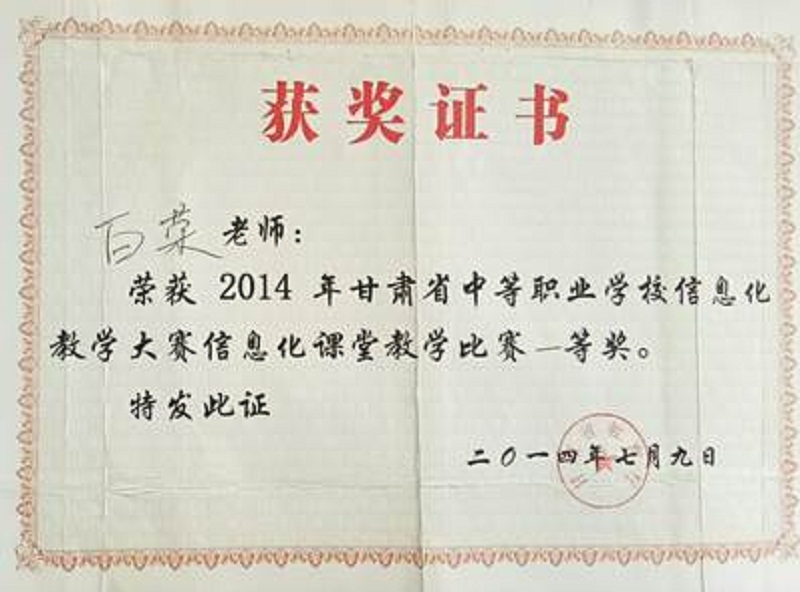 获奖证书
白荣老师：
荣获 2014 年甘肃省中等职业学校信息化
教学大赛信息化课堂教学比赛一等奖。
特发此证
二〇一四年七月九日